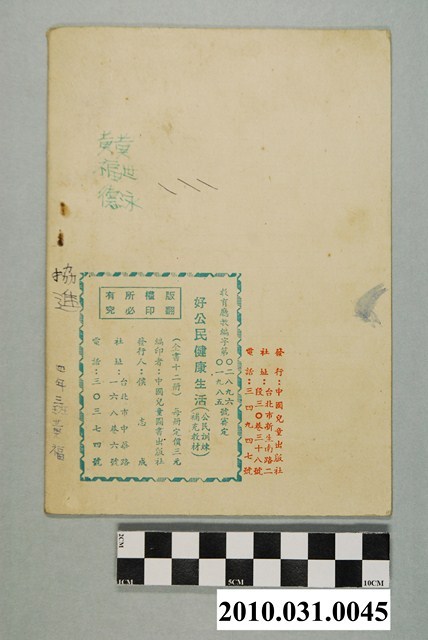 黃世永
黃福德
協進
四年三班黃福
教育廳教編字第〇二八九六
〇一九八五號審定
好公民健康生活(公民訓練補充教材)
(全書十二冊) 每冊定價三元
編印者:中國兒童圖書出版社
發行人:儀志成
社址:台北市中華路一六八巷六號
電話:三〇三七四號
版權所有
翻印必究
發行:中國兒童出版社
社址:台北市新生南路二段三〇巷三十八號
電話:三四九四七號
2CM
1CM
5CM
10CM
2010.031.0045